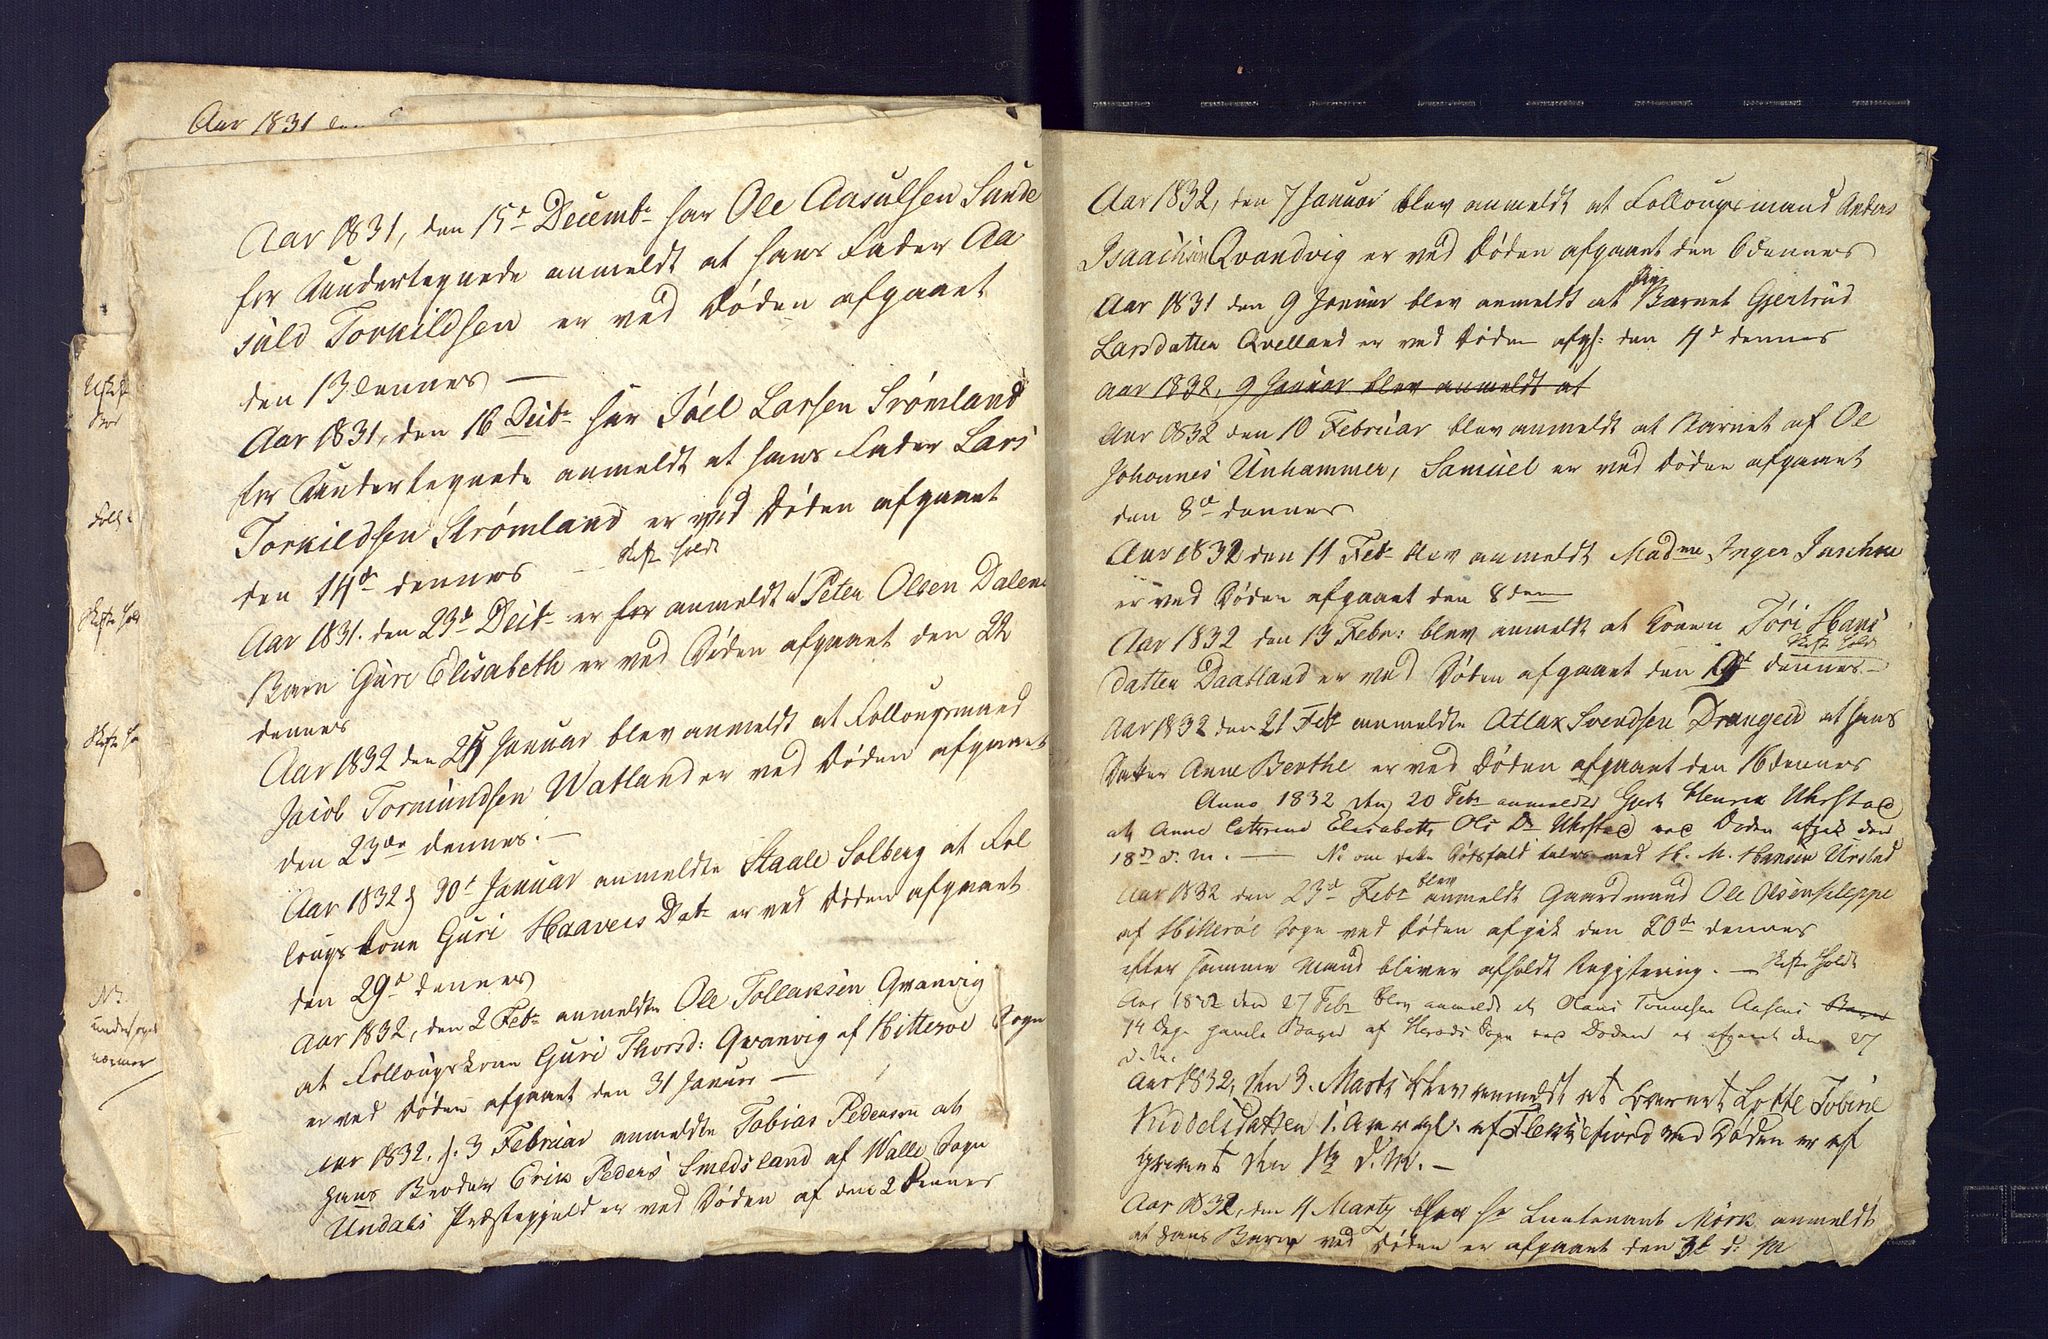 Aar 1831 den
Aar 1831, den 15d Decembr har Ole Aasulsen Sande
for Undertegnede anmeldt at hans Fader Aa
suld Torkildsen er ved Døden afgaaet
den 13 dennes —
Aar 1831, den 16 Decbr har Joel Larsen Strømland
for Undertegnede anmeldt at hans Fader Lars
Torkildsen Strømland er ved Døden afgaaet
den 14de dennes — Skifte holdt
Aar 1831. den 23d Decbr er for anmeldt at Peter Olsen Dalens
Barn Guri Elisabeth er ved Døden afgaaet den 22
dennes
Aar 1832 den 25 Januar blev anmeldt at Follougsmand
Jacob Tormundsen Watland er ved Døden afgaaet
den 23de dennes. —
Aar 1832 d 30t Januar anmeldte Staale Solberg at Fol
lougskone Guri Haavers Datr er ved Døden afgaaet
den 29d dennes
Aar 1832, den 2 Febr anmeldte Ole Tollaksen Qvanvig
at Follougskone Guri Thorsd: Qvanvig af Hitterøe Sogn
er ved Døden afgaaet den 31 Januar —
Aar 1832. d. 3 Februar anmeldte Tobias Pederson at
hans Broder Erik Peders Smedsland af Walle Sogn
Undals Præstegjeld er ved Døden af den 2 dennes
Skifte hol
Skifte ho
NB.
undersøges
nærmer
Aar 1832, den 7 Januar blev anmeldt at Follougsmand Anders
Isaachsen Qvandvig er ved Døden afgaaet den 6 dennes
Aar 1831 den 9 Januar blev anmeldt at Pige Barnet Gjertrud
Larsdatter Qvelland er ved Døden afg: den 4d dennes
Aar 1832, 9 Januar blev anmeldt at
Aar 1832 den 10 Februar blev anmeldt at Barnet af Ole
Johannes Unhammer, Samuel er ved Døden afgaaet
den 8de dennes
Aar 1832 den 11 Febr blev anmeldt Madme Inger
er ved Døden afgaaet den 8 den
Aar 1832 den 13 Febr: blev anmeldt at Konen Tøri Hans
Skifte holdt
datter Daatland er ved Døden afgaaet den 9d dennes —
Aar 1832 den 21 Febr anmeldte Atlak Svendsen Drangeid at hans
Datter Anne Berthe er ved Døden afgaaet den 16 dennes
Anno 1832 den 20 Febr anmeldte Gjert Henrik Uhrstad
at Anne Catrine Elisabeth Ols Dr Uhrstad ved Døden afgik den
18de d. M. — NB om dette Dødsfald tales med H. M. Hansen Urstad
Aar 1832 den 23de Febr blev anmeldt Gaardmand Ole Olsen Kleppe
af Hitterøe Sogn ved Døden afgik den 20de dennes
efter samme Mand bliver afholdt Registering. — Skifte holdt
Aar 1832 den 27 Febr blev anmeldt at Hans Tønnesen Aasens Barn
14 Dage gamle Barn af Herads Sogn ved Døden er afgaaet den 27
d. M.
Aar 1832, den 3. Marts blev anmeldt at Barnet Lotte Tobine
Middelsdatter 1. Aar gl. af Flekkefiord ved Døden er af
gaaet den d. M. —
Aar 1832, den 4 Marts har Hr Lieutenant Mørk anmeldt
at hans Barn ved Døden er afgaaet den 3de d: M